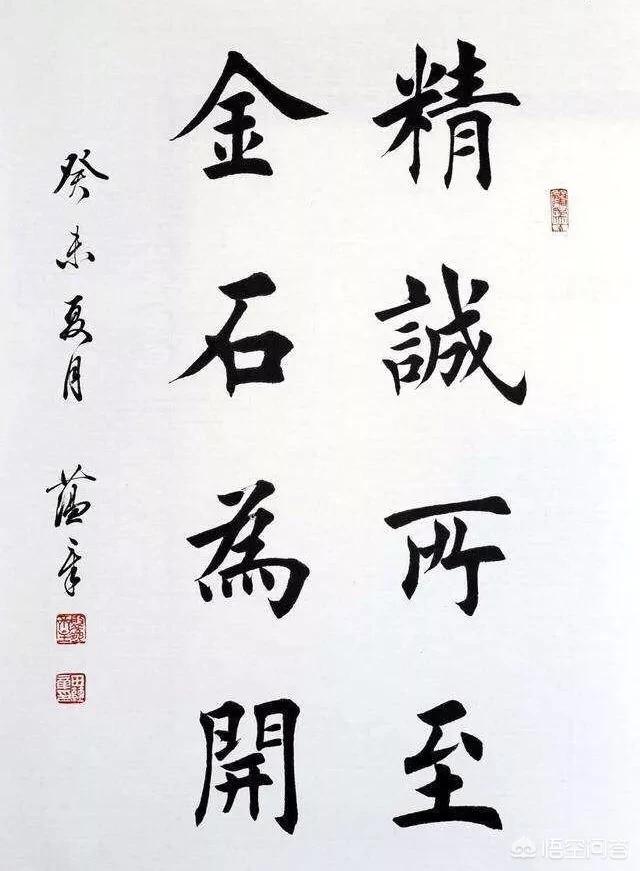 精誠所至
金石為開
癸未夏月 薀章
悟空问答